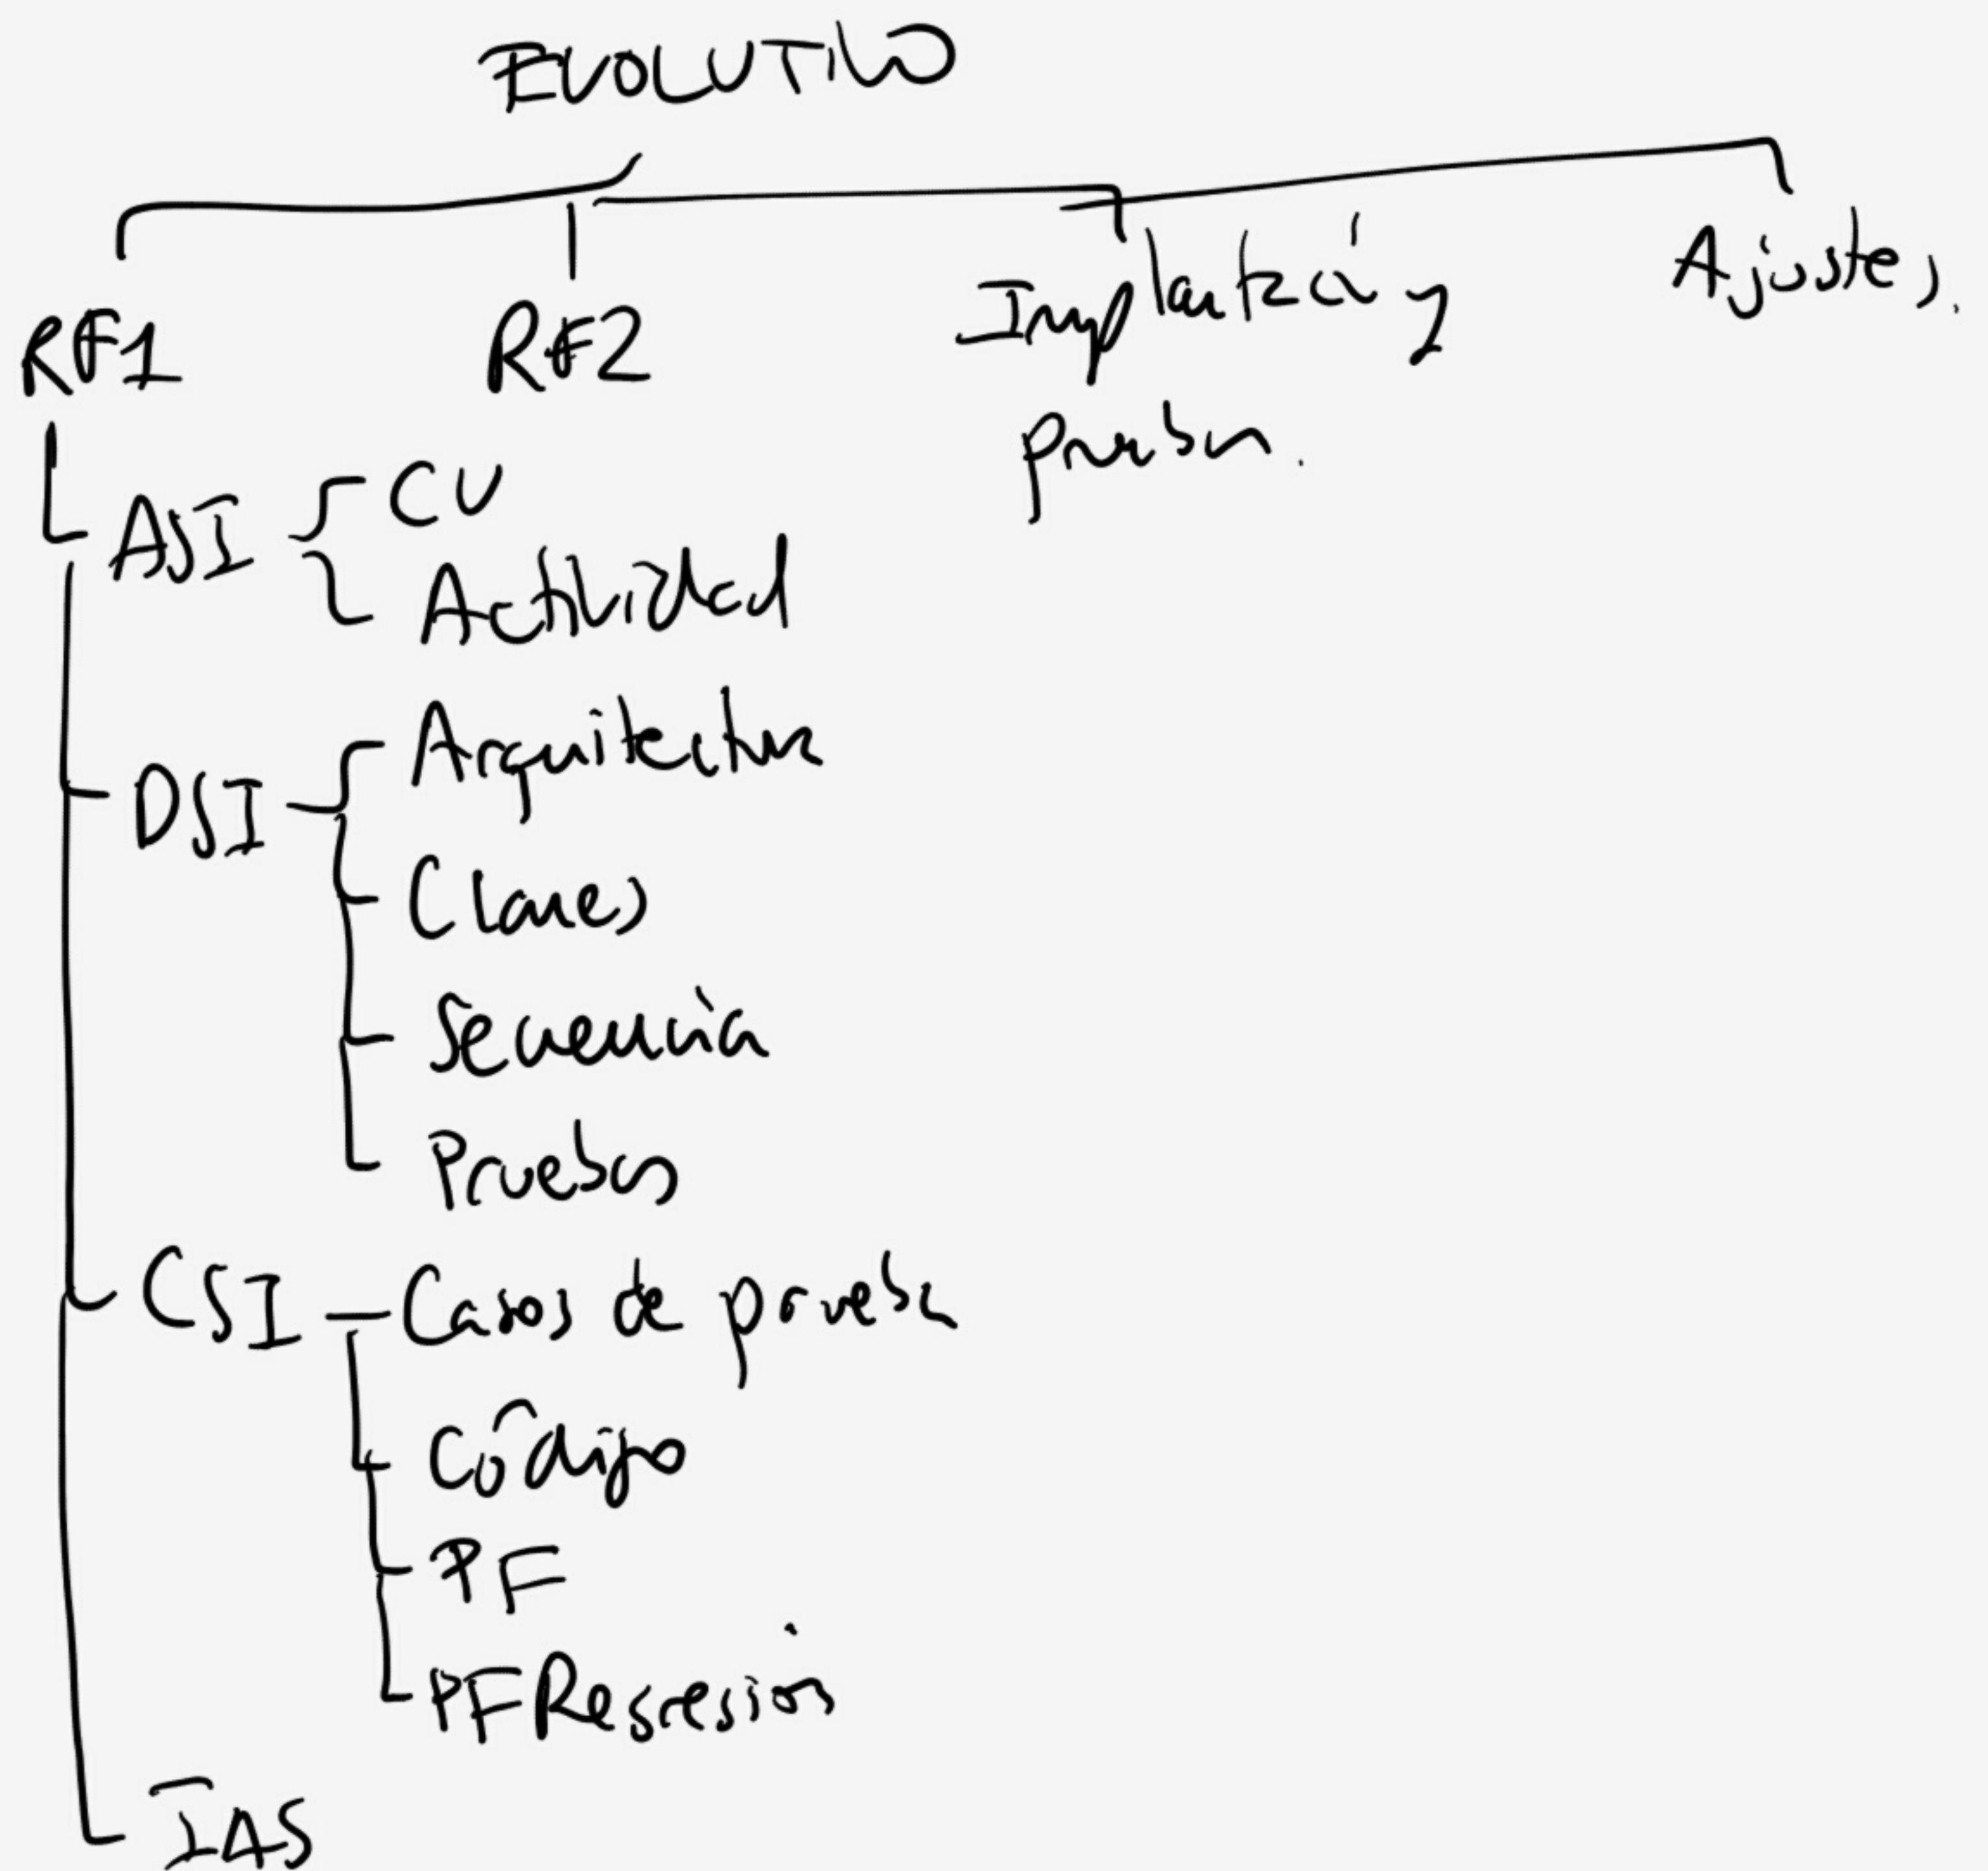 EVOLUTIVO
RF1 RF2 Implantació y Ajustes.
pruebas.
ASI CU
Actividad
DSI Arquitectura
Clases
Secuencia
Pruebas
CSI Casos de prueba
Código
PF
PFRegresión
IAS